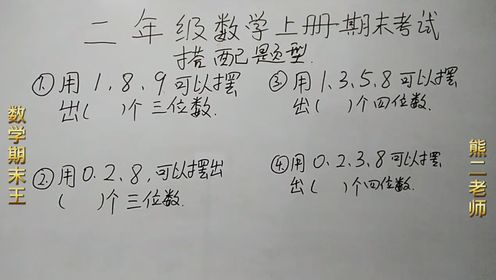 二年级数学上册期末考试
搭配题型.
①用1,8,9可以摆
出( )个三位数.
②用0.2.8,可以摆出
( )个三位数.
③用1.3.5.8可以摆
出( )个四位数.
④用0.2.3.8可以摆
出( )个四位数.
数学期末王
熊二老师